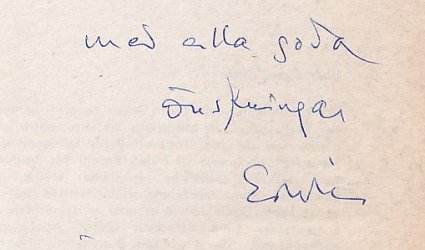 med alla goda
önskningar
Edwin